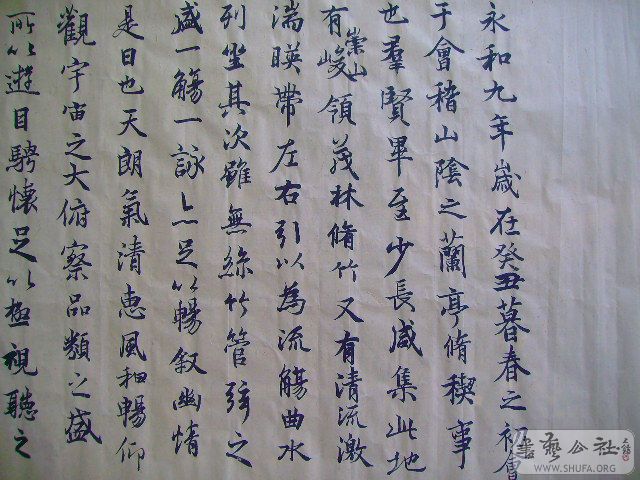 永和九年歲在癸丑暮春之初會
于會稽山陰之蘭亭脩稧事
也羣賢畢至少長咸集此地
有崇山峻領茂林脩竹又有清流激
湍暎帶左右引以為流觴曲水
列坐其次雖無絲竹管弦之
盛一觴一詠亦足以暢叙幽情
是日也天朗氣清惠風和暢仰
觀宇宙之大俯察品類之盛
所以遊目騁懷足以極視聽之
書藝公社
WWW.SHUFA.ORG